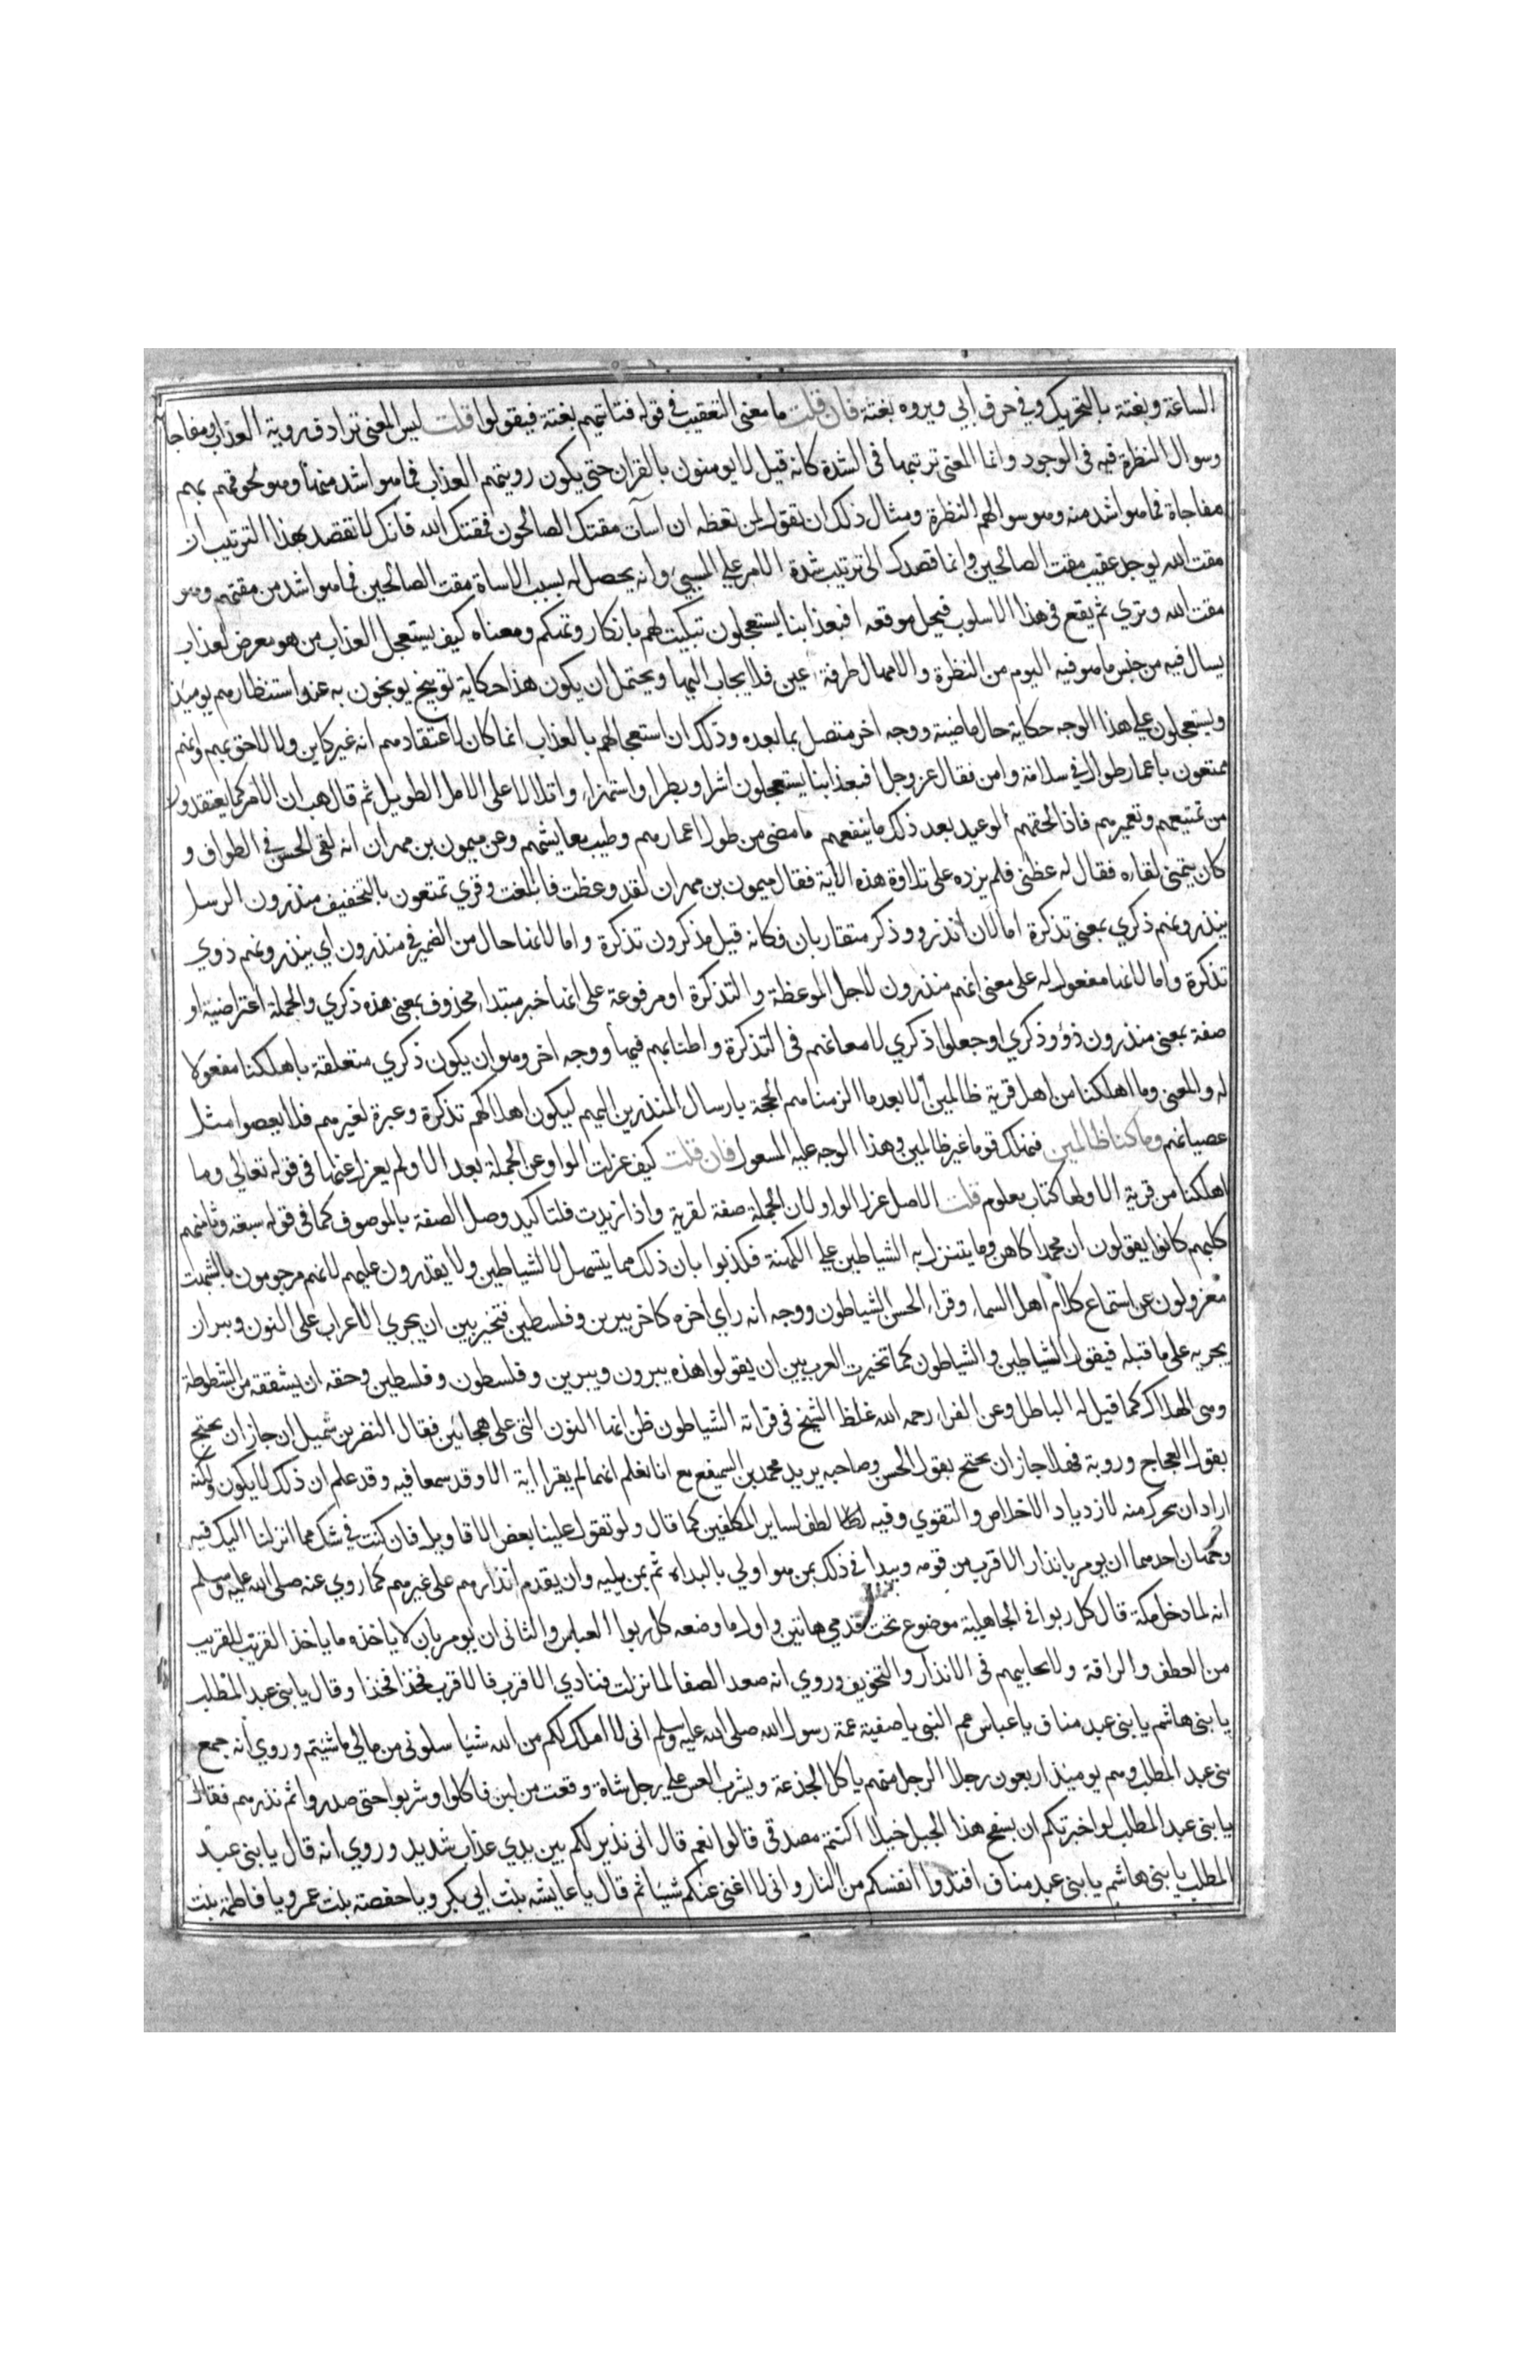 الساعة وبغتة بالتحريك وفي حرف ابي ويروه بغتة فان قلت ما معنى التعقيب في قوله فتاتيهم بغتة فيقولوا قلت ليس المعنى ترادف روية العذاب ومفاجا
وسوال النظرة فيه في الوجود وانما المعنى ترتبها في الشدة كانه قيل لا يومنون بالقران حتى يكون رويتهم العذاب فما هو اشد منها وهو لحوقهم بهم
مفاجاة فما هو اشد منه وهو سوالهم النظرة ومثال ذلك ان تقول لمن تعظه ان اسأت مقتك الصالحون فمقتك الله فانك لا تقصد بهذا الترتيب ان
مقت الله يوجد عقيب مقت الصالحين وانما قصدك الى ترتيب شدة الامر على المسيء وانه يحصل له بسبب الاساة مقت الصالحين فما هو اشد من مقتهم وهو
مقت الله وتري ثم يقع في هذا الاسلوب فيحل موقعه افبعذابنا يستعجلون تبكيت لهم بانكار وتهكم ومعناه كيف يستعجل العذاب من هو معرض لعذاب
يسال فيه من جنس ما هو فيه اليوم من النظرة والامهال طرفة عين فلا يجاب اليها ويحتمل ان يكون هذا حكاية توبيخ يوبخون به عند استنظارهم يوميذ
ويستعجلون على هذا الوجه حكاية حال ماضية ووجه اخر متصل بما بعده وذلك ان استعجالهم بالعذاب انما كان لاعتقادهم انه غير كاين ولا لاحق بهم وانهم
ممتعون باعمار طوال في سلامة وامن فقال عز وجل افبعذابنا يستعجلون اشرا وبطرا واستهزاء واتلالا على الامل الطويل ثم قال هب ان الامر كما يعتقدون
من تمتيعهم وتعميرهم فاذا لحقهم الوعيد بعد ذلك ما ينفعهم ما مضى من طول اعمارهم وطيب معايشهم وعن ميمون بن مهران انه لقي الحسن في الطواف و
كان يتمنى لقاءه فقال له عظني فلم يزده على تلاوة هذه الاية فقال ميمون بن مهران لقد وعظت فابلغت وقري تمتعون بالتخفيف منذرون الرسل
ينذرونهم ذكري بمعنى تذكرة اما لان انذر وذكر متقاربان فكانه قيل مذكرون تذكرة واما لانها حال من الضمير في منذرون اي ينذرونهم ذوي
تذكرة واما لانها مفعول له على معنى انهم منذرون لاجل الموعظة والتذكرة او مرفوعة على انها خبر مبتداء محذوف بمعنى هذه ذكري والجملة اعتراضية او
صفة بمعنى منذرون ذوو ذكري او جعلوا ذكري لامعانهم في التذكرة واطنابهم فيها ووجه اخر وهو ان يكون ذكري متعلقة باهلكنا مفعولا
له والمعنى وما اهلكنا من اهل قرية ظالمين الا بعد ما الزمناهم الحجة بارسال المنذرين اليهم ليكون اهلاكهم تذكرة وعبرة لغيرهم فلا يعصوا مثل
عصيانهم وما كنا ظالمين فنهلك قوما غير ظالمين وهذا الوجه عليه المعول فان قلت كيف عزلت الواو عن الجملة بعد الا ولم يعزل عنها في قوله تعالى وما
اهلكنا من قرية الا ولها كتاب معلوم قلت الاصل عزل الواو لان الجملة صفة لقرية واذا زيدت فلتاكيد وصل الصفة بالموصوف كما في قوله سبعة وثامنهم
كلبهم كانوا يقولون ان محمدا كاهن وما يتنزل به الشياطين على الكهنة فكذبوا بان ذلك مما يتسهل للشياطين ولا يقدرون عليهم لانهم مرجومون بالشهب
معزولون عن استماع كلام اهل السماء وقراء الحسن الشياطون ووجه انه راي اخره كاخر يبرين وفلسطين فتخير بين ان يجري الاعراب على النون وبين ان
يجريه على ما قبله فيقول الشياطين والشياطون كما تخيرت العرب بين ان يقولوا هذه يبرون ويبرين وفلسطون وفلسطين وحقه ان يشتقه من الشطوطة
وهي الهلاك كما قيل له الباطل وعن الفراء رحمه الله غلط الشيخ في قراته الشياطون ظن انها النون التي على هجائين فقال النضر بن شميل ان جاز ان يحتج
بقول العجاج وروبة فهلا جاز ان يحتج بقول الحسن وصاحبه يريد محمد بن السميفع مع انا نعلم انهما لم يقرا اية الا وقد سمعا فيه وقد علم ان ذلك لا يكون ولكنه
اراد ان يحرك منه لازدياد الاخلاص والتقوي وفيه لطف لساير المكلفين كما قال ولو تقول علينا بعض الاقاويل فان كنت في شك مما انزلنا اليك فيه
وجهان احدهما ان يومر بانذار الاقرب من قومه ويبدا في ذلك بمن هو اولي بالبداه ثم بمن يليه وان يقدم انذارهم على غيرهم كما روي عنه صلى الله عليه وسلم
انه لما دخل مكة قال كل ربوا في الجاهلية موضوع تحت قدمي هاتين واول ما وضعه كل ربوا العباس والثاني ان يومر بان لا ياخذه ما ياخذ القريب للقريب
من العطف والرافة ولا يحابيهم في الانذار والتخويف وروي انه صعد الصفا لما نزلت فنادي الاقرب فالاقرب فخذا فخذا وقال يا بني عبد المطلب
يا بني هاشم يا بني عبد مناف يا عباس عم النبي يا صفية عمة رسول الله صلى الله عليه وسلم اني لا املك لكم من الله شيا سلوني من مالي ما شيتم وروي انه جمع
بني عبد المطلب وهم يوميذ اربعون رجلا الرجل منهم ياكل الجذعة ويشرب العس على رجل شاة وقعب من لبن فاكلوا وشربوا حتى صدروا ثم نذرهم فقال
يا بني عبد المطلب لو اخبرتكم ان بسفح هذا الجبل خيلا اكنتم مصدقي قالوا نعم قال اني نذير لكم بين يدي عذاب شديد وروي انه قال يا بني عبد
المطلب يا بني هاشم يا بني عبد مناف افتدوا انفسكم من النار واني لا اغني عنكم شيئا ثم قال يا عايشه بنت ابي بكر ويا حفصة بنت عمر ويا فاطمة بنت